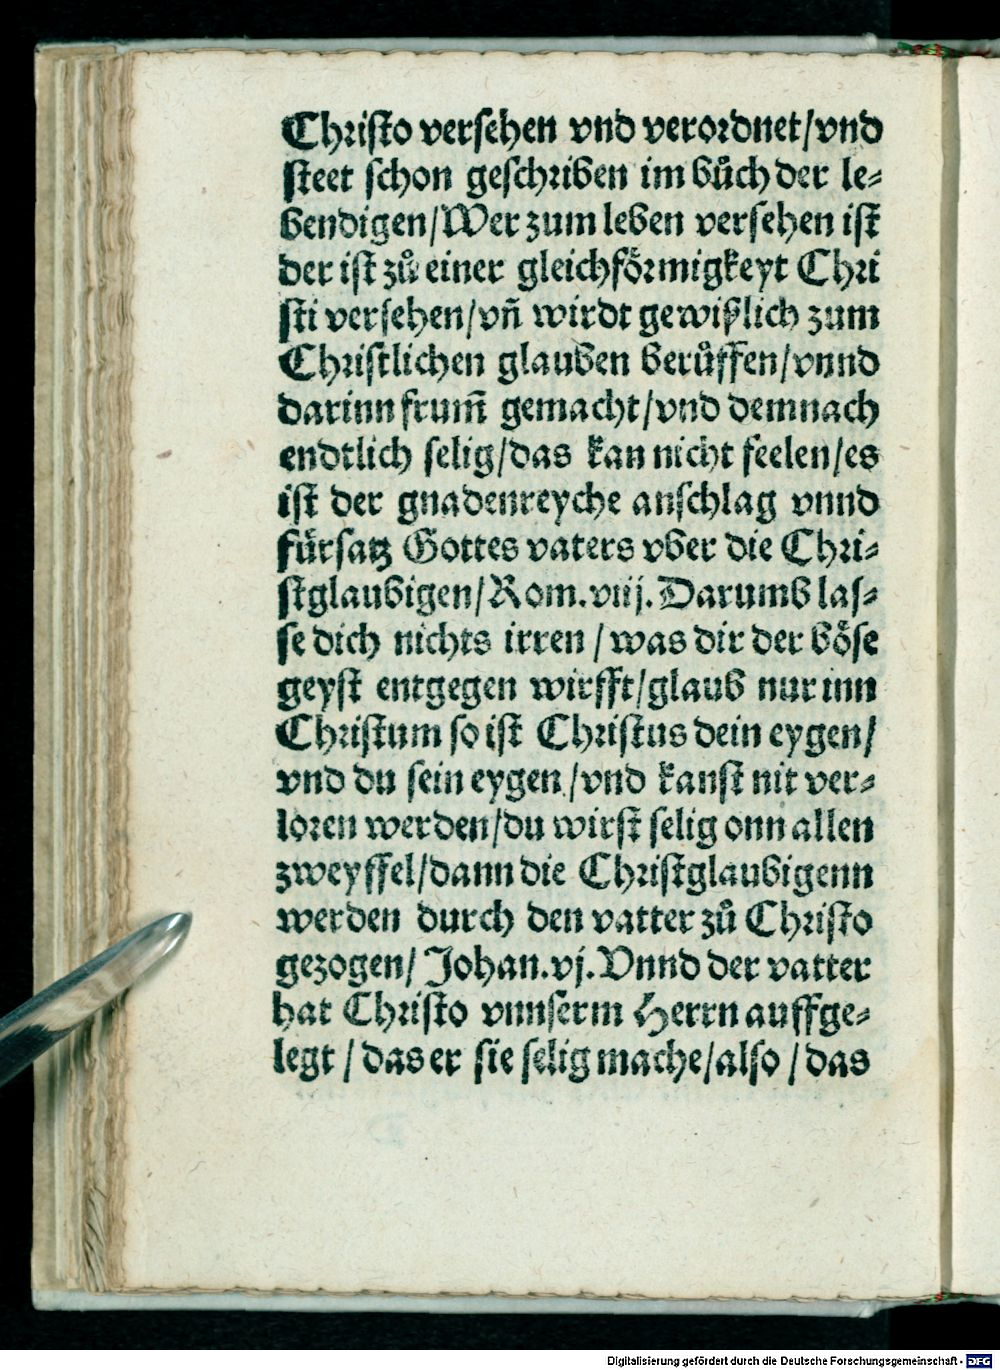 Christo versehen vnd verordnet/vnd
steet schon geschriben im bůch der le⸗
bendigen/Wer zum leben versehen ist
der ist zů einer gleichförmigkeyt Chri
sti versehen/vñ wirdt gewißlich zum
Christlichen glauben berůffen/vnnd
darinn frum̃ gemacht/vnd demnach
endtlich selig/das kan nicht feelen/es
ist der gnadenreyche anschlag vnnd
fürsatz Gottes vaters vber die Chri⸗
stglaubigen/Rom.viij. Darumb las⸗
se dich nichts irren/was dir der böse
geyst entgegen wirfft/glaub nur inn
Christum so ist Christus dein eygen/
vnd du sein eygen/vnd kanst nit ver⸗
loren werden/du wirst selig onn allen
zweyffel/dann die Christglaubigenn
werden durch den vatter zů Christo
gezogen/Johan.vj. Vnnd der vatter
hat Christo vnnserm Herrn auffge⸗
legt/das er sie selig mache/also/das
Digitalisierung gefördert durch die Deutsche Forschungsgemeinschaft - DFG